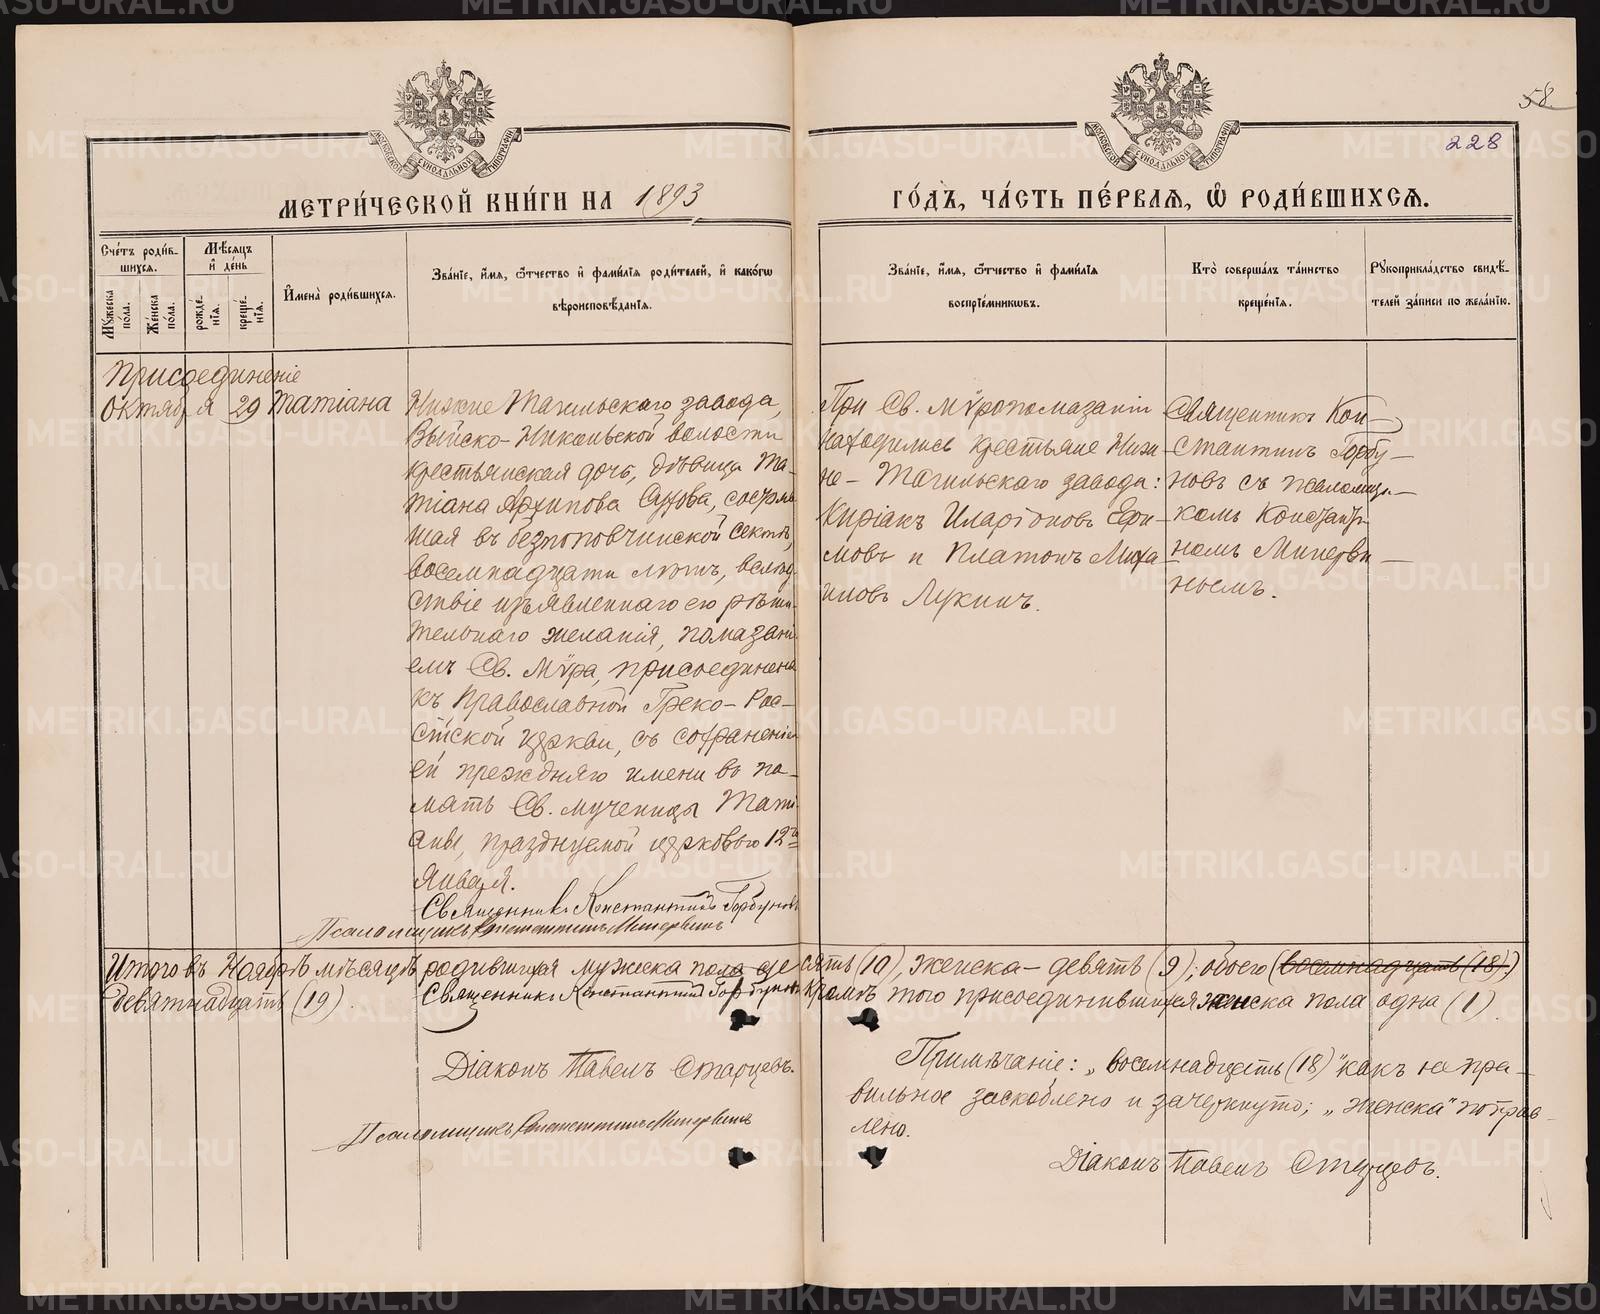 58
228
МОСКОВСКОЙ СУНОДАЛЬНОЙ ТИПОГРАФІИ
МОСКОВСКОЙ СУНОДАЛЬНОЙ ТИПОГРАФІИ
МЕТРИ́ЧЕСКОЙ КНИ́ГИ НА 1893
ГО́ДЪ, ЧА́СТЬ ПЕ́РВАѦ, Ѡ҆ РОДИ́ВШИХСѦ.
Сче́тъ роди́в-
шихся.
Мꙋ́жеска по́ла.
Же́нска по́ла.
Мѣ́сяцъ
и҆ де́нь
рожде́-
нїѧ.
креще́-
нїѧ.
И҆мена̀ роди́вшихся.
Зва́нїе, и҆́мѧ, ѻ҆́тчество и҆ фами́лїѧ роди́телей, и҆ како́гѡ
вѣроисповѣ́данїѧ.
Зва́нїе, и҆́мѧ, ѻ҆́тчество и҆ фами́лїѧ
воспрїе́мникѡвъ.
Кто̀ соверша́лъ та́инство
креще́нїѧ.
Рꙋкоприкла́дство свидѣ́-
телей за́писи по жела́нїю.
Присоединеніе
Октября 29 Татіана
Нижне Тагильскаго завода,
Выйско-Никольской волости
крестьянская дочь, дѣвица Та-
тіана Архипова
шая въ безпоповчинской сектѣ,
восемнадцати лѣтъ, вслѣд
ствіе изъявленнаго ею рѣши-
тельнаго желанія, помазані
емъ Св. Мѵра, присоединена
къ Православной Греко-Рос-
сійской церкви, съ сохраненіем
ей прежняго имени въ па-
мять Св. мученицы Тати-
аны, празднуемой церковью 12го
Января.
Священникъ Константинъ Горбуновъ
Псаломщикъ Константинъ Минервинъ
При Св. Мѵропомазаніи
находились крестьяне Ниж-
не-Тагильскаго завода:
Киріакъ Иларіоновъ Ефи-
мовъ и Платонъ Миха
иловъ Лукинъ.
Священникъ Кон-
стантинъ Горбу-
новъ съ псаломщи-
комъ Константи-
номъ Минерви-
нымъ.
Итого въ Ноябрѣ мѣсяцѣ родившихся мужеска пола десять (10), женска - девять (9); обоего (восемнадцать (18))
девятнадцать (19). Священникъ Константинъ Горбуновъ Кромѣ того присоединившихся женска пола одна (1).
Діаконъ Павелъ Старцевъ.
Псаломщикъ Константинъ Минервинъ
Примѣчаніе: „восемнадцать (18)" какъ непра-
вильное заскоблено и зачеркнуто; „женска" поправ-
лено.
Діаконъ Павелъ Старцевъ.
METRIKI.GASO-URAL.RU